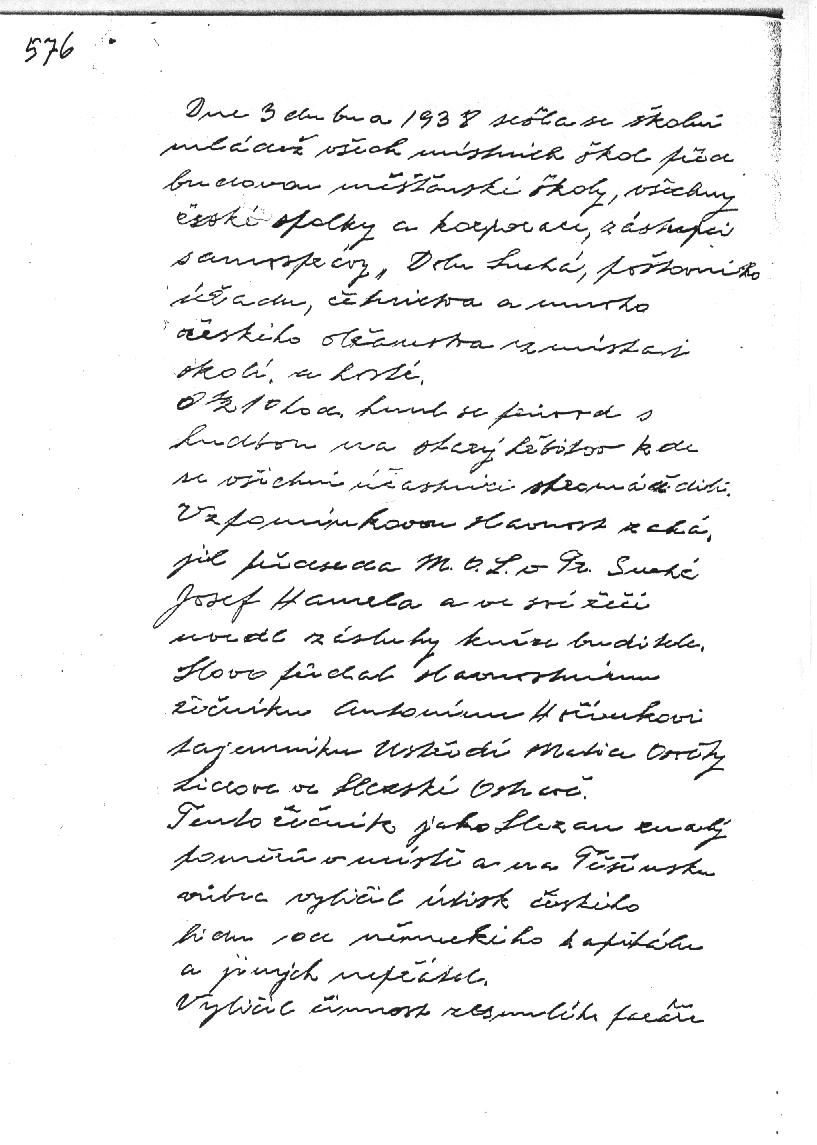 576
Dne 3 dubna 1938 sešla se školní
mládež všech místních škol před
budovou měšťanské školy, všechny
české spolky a korporace, zástupci
samosprávy, Dolu Suchá, poštovního
úřadu, četnictva a mnoho
českého občanstva z místa i
okolí, a hosté.
O ½ 10 hod. hnul se průvod s
hudbou na starý hřbitov kde
se všichni účastníci shromáždili.
Vzpomínkovou slavnost zahá,
jil předseda M.O.L. v Pr. Suché
Josef Hamela a ve své řeči
uvedl zásluhy kněze buditele.
Slovo předal slavnostnímu
řečníku Antonínu Hořínkovi
tajemníku Ústředí Matice Osvěty
Lidové ve Slezské Ostravě.
Tento řečník, jako Slezan znalý
poměrů v místě a na Těšínsku
vylíčil útisk českého
lidu od německého kapitálu
a jiných nepřátel.
Vylíčil činnost zesnulého faráře